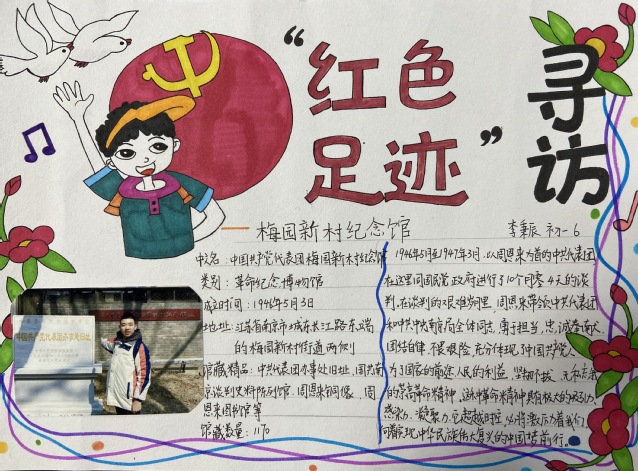 “红色
足迹”
寻访
——梅园新村纪念馆
李秉振 初一6
中名:中国共产党代表团梅园新村纪念馆
类别:革命纪念博物馆
成立时间:1946年5月3日
地址:江苏省南京市城东长江路东端
的梅园新村街道两侧
馆藏精品:中共代表团办事处旧址,国共南
京谈判史料陈列馆、周恩来铜像、周
恩来图书馆等
馆藏数量:1170
1946年5月至1947年3月,以周恩来为首的中共代表团
在这里同国民党政府进行了10个月零4天的谈
判。在谈判的艰难岁月里,周恩来率领中共代表团
和中共中央南京局全体同志,勇于担当,忠诚奉献、
团结自律、不畏艰险,充分体现了中国共产党人
为了国家的前途人民的利益,坚韧不拔、
的崇高革命精神,这种革命精神具有极大的
感染力、凝聚力,它超越时空,必将激励着我们
向着实现中华民族伟大复兴的中国梦前行。
中国共产党代表团办事处旧址